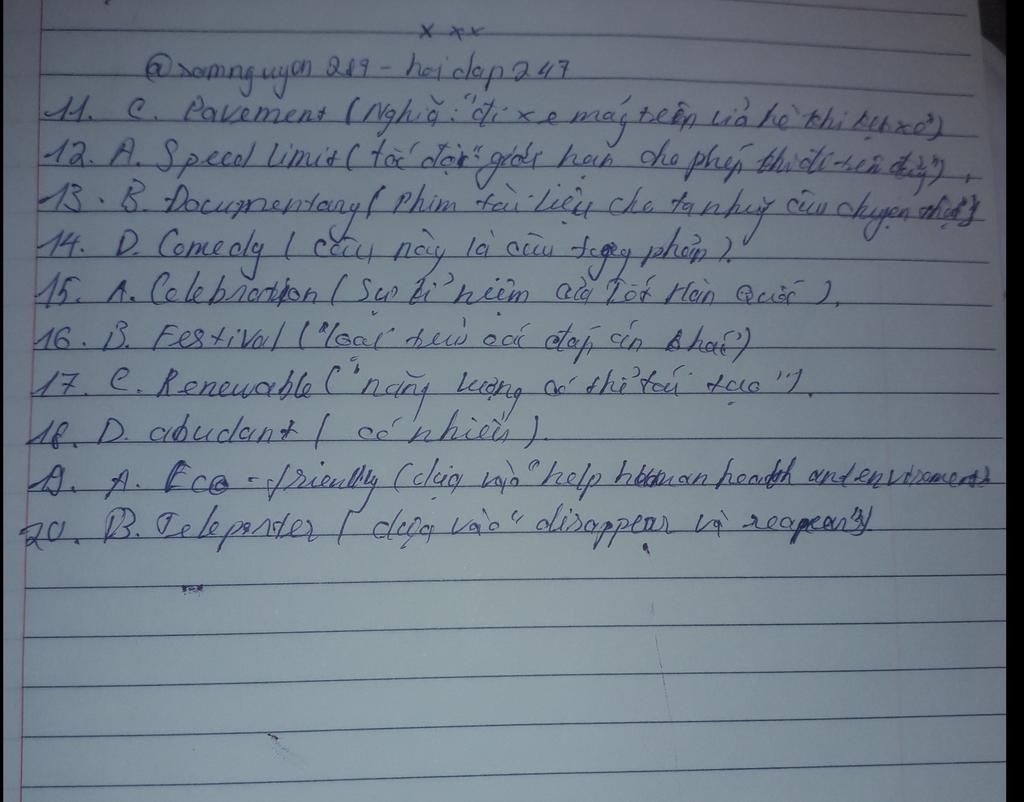 x xx
@xamnguyen 289 - hoidap247
11. C. Pavement (Nghĩa: "đi xe máy trên vỉa hè thì bị xử)
12. A. Speed limit (tốc độ" giới hạn cho phép khi đi trên đường").
13. B. Documentary (Phim tài liệu cho ta câu chuyện thật)
14. D. Comedy (câu này là câu tương phản).
15. A. Celebration (Sự kỉ niệm của Tết Hàn Quốc).
16. B. Festival ("loại trừ các đáp án khác")
17. C. Renewable ("năng lượng có thể tái tạo").
18. D. abudant (có nhiều).
19. A. Eco-friendly (dựa vào "help human health and enviroment)
20. B. Teleporter (dựa vào "disappear và reapear")